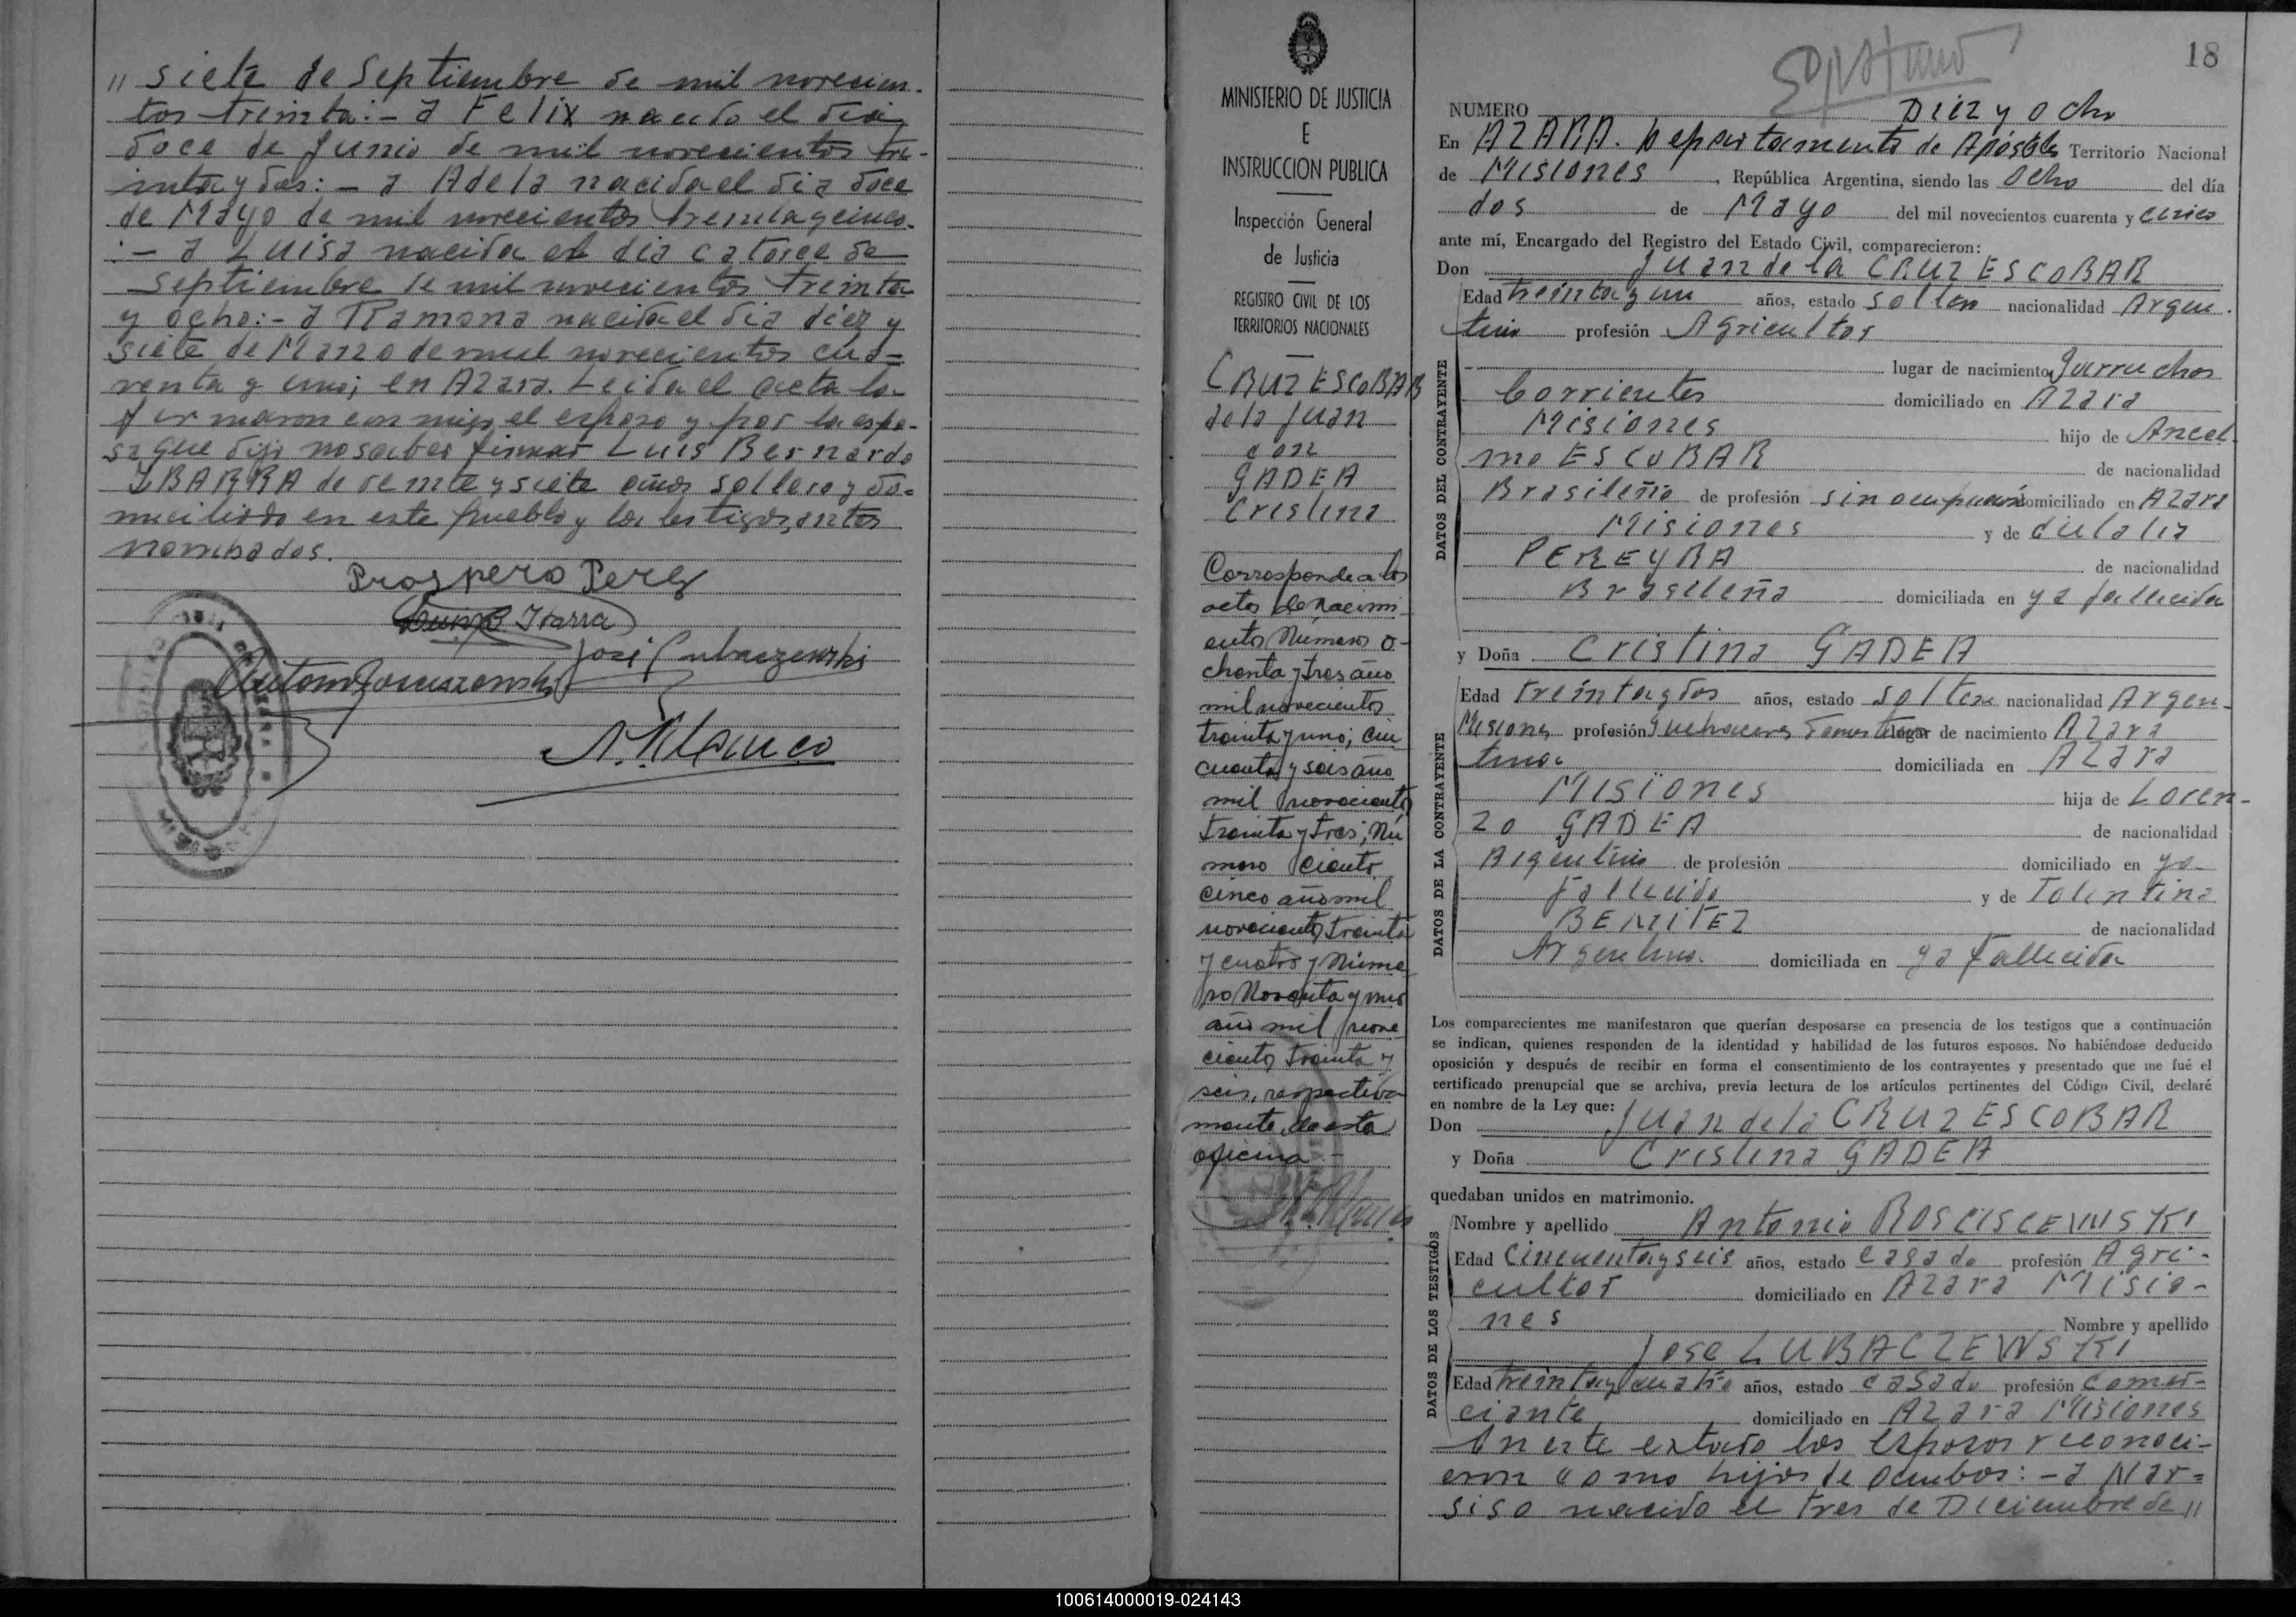 " siete de Septiembre de mil novecien-
tos treinta:- a Felix nacido el dia
doce de Junio de mil novecientos tre-
inta y dos:- a Adela nacida el dia doce
de Mayo de mil novecientos treinta y cinco.
:- a Luisa nacida el dia catorce de
Septiembre de mil novecientos treinta
y ocho:- a Ramona nacida el dia diez y
siete de Marzo de mil novecientos cua=
renta y uno; en Azara. Leida el acta la
firmaron con migo, el esposo y por la espo-
sa que dijo no saber firmar Luis Bernardo
IBARRA de veinte y siete años soltero y do=
miciliado en este pueblo y los testigos, antes
nombados.
Prospero Perez
Luis B Ibarra
José Lubaczewski
A. Blanco
MINISTERIO DE JUSTICIA
E
INSTRUCCION PUBLICA
Inspección General
de Justicia
REGISTRO CIVIL DE LOS
TERRITORIOS NACIONALES
CRUZ ESCOBAR
de la Juan
con
GADEA
Cristina
Corresponde a los
actos de nacimi
entos Números o-
chenta y tres año
mil novecientos
treinta y uno; cin
cuenta y seis año
mil novecientos
treinta y tres; Nú
mero ciento
cinco año mil
novecientos treinta
y cuatro y Núme
ro Noventa y uno
año mil nove
cientos treinta y
seis, respectiva
mente, de esta
oficina.-
18
NUMERO Diez y ocho
En AZARA. Departamento de Apóstoles Territorio Nacional
de Misiones, República Argentina, siendo las Ocho del día
dos de Mayo del mil novecientos cuarenta y cinco
ante mí, Encargado del Registro del Estado Civil, comparecieron:
Don Juan de la CRUZ ESCOBAR
DATOS DEL CONTRAYENTE
Edad treinta y un años, estado soltero nacionalidad Argen-
tino profesión Agricultor
lugar de nacimiento Garruchos
Corrientes domiciliado en Azara
Misiones hijo de Ancel
mo ESCOBAR de nacionalidad
Brasileño de profesión sin ocupación domiciliado en Azara
Misiones y de Eulalia
PEREYRA de nacionalidad
Brasileña domiciliada en ya fallecida
y Doña Cristina GADEA
DATOS DE LA CONTRAYENTE
Edad treinta y dos años, estado soltera nacionalidad Argen-
Misiones profesión Quehaceres Domesticos lugar de nacimiento Azara
tina. domiciliada en Azara
Misiones hija de Loren-
zo GADEA de nacionalidad
Argentino de profesión domiciliado en ya
fallecido y de Tolentina
BENITEZ de nacionalidad
Argentina. domiciliada en ya fallecida
Los comparecientes me manifestaron que querían desposarse en presencia de los testigos que a continuación
se indican, quienes responden de la identidad y habilidad de los futuros esposos. No habiéndose deducido
oposición y después de recibir en forma el consentimiento de los contrayentes y presentado que me fué el
certificado prenupcial que se archiva, previa lectura de los artículos pertinentes del Código Civil, declaré
en nombre de la Ley que:
Don Juan de la CRUZ ESCOBAR
y Doña Cristina GADEA
quedaban unidos en matrimonio.
DATOS DE LOS TESTIGOS
Nombre y apellido Antonio ROSCISCEWSKI
Edad Cincuenta y seis años, estado casado profesión Agri-
cultor domiciliado en Azara Misio-
nes Nombre y apellido
Jose LUBACZEWSKI
Edad treinta y cuatro años, estado casado profesión Comer-
ciante domiciliado en Azara Misiones
En este estado los esposos reconoci-
eron como hijos de ambos:- a Nar=
siso nacido el tres de Diciembre de "
100614000019-024143